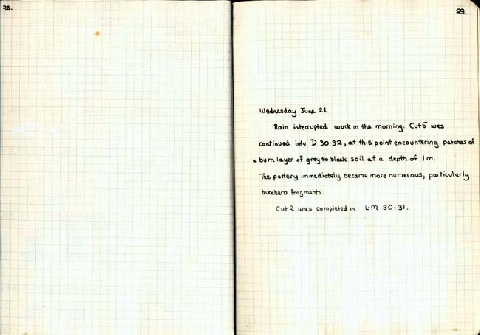 28.
29
Wednesday June 21
Rain interrupted work in the morning. Cut 5 was
continued into D 30·32, at this point encountering patches of
a burn layer of grey to black soil at a depth of 1m.
The pottery immediately became more numerous, particularly
fragments
Cut 2 was completed in LM 30·31.